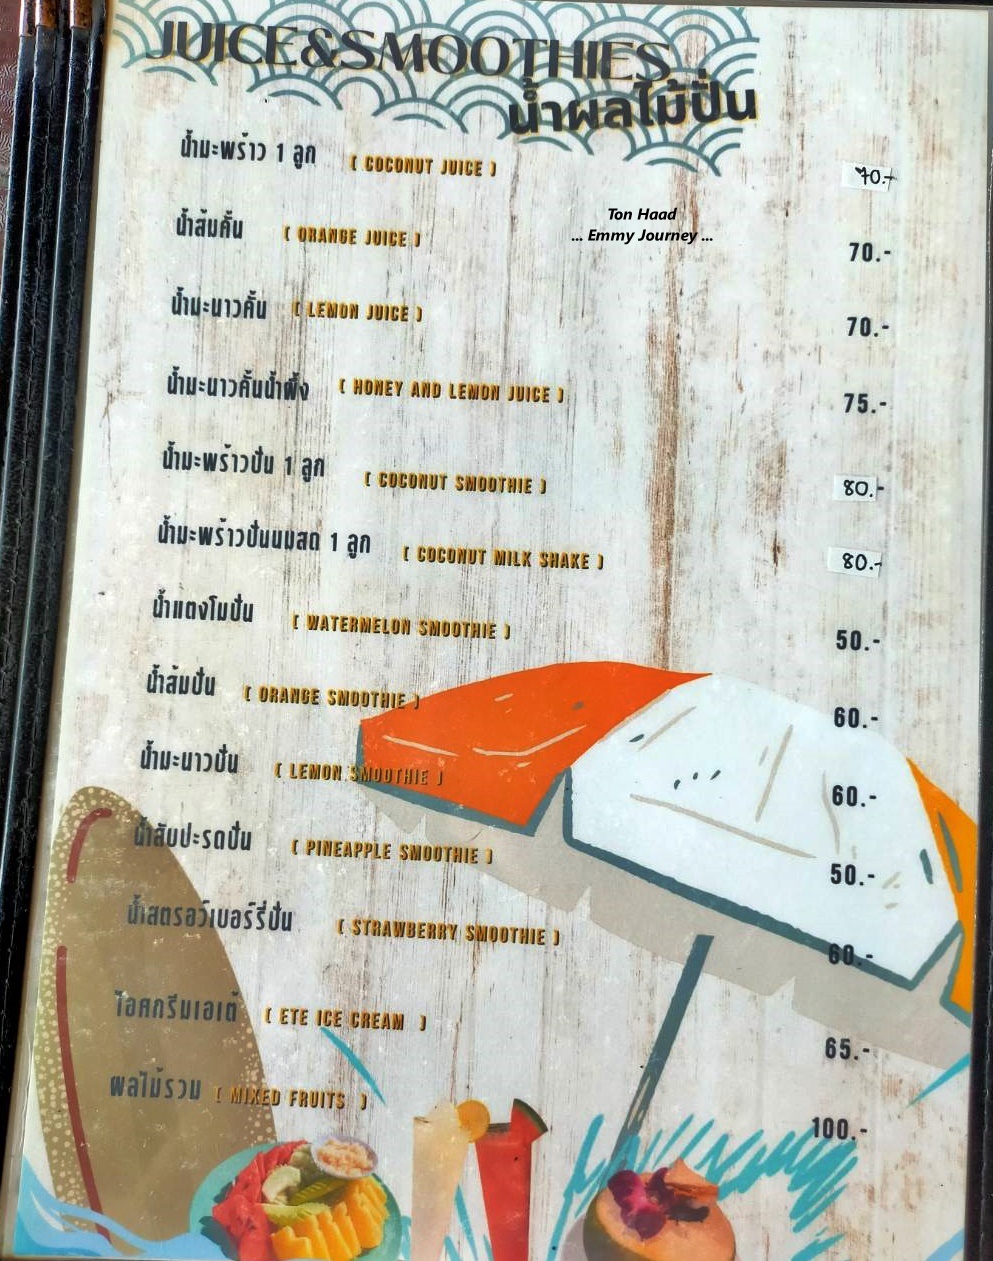 JUICE&SMOOTHIES
น้ำผลไม้ปั่น
น้ำมะพร้าว 1 ลูก ( COCONUT JUICE ) 70.-
Ton Haad
... Emmy Journey ...
น้ำส้มคั้น ( ORANGE JUICE ) 70.-
น้ำมะนาวคั้น ( LEMON JUICE ) 70.-
น้ำมะนาวคั้นน้ำผึ้ง ( HONEY AND LEMON JUICE ) 75.-
น้ำมะพร้าวปั่น 1 ลูก ( COCONUT SMOOTHIE ) 80.-
น้ำมะพร้าวปั่นนมสด 1 ลูก ( COCONUT MILK SHAKE ) 80.-
น้ำแตงโมปั่น ( WATERMELON SMOOTHIE ) 50.-
น้ำส้มปั่น ( ORANGE SMOOTHIE ) 60.-
น้ำมะนาวปั่น ( LEMON SMOOTHIE ) 60.-
น้ำสับปะรดปั่น ( PINEAPPLE SMOOTHIE ) 50.-
น้ำสตรอว์เบอร์รี่ปั่น ( STRAWBERRY SMOOTHIE ) 60.-
ไอศกรีมเอเต้ ( ETE ICE CREAM ) 65.-
ผลไม้รวม ( MIXED FRUITS ) 100.-